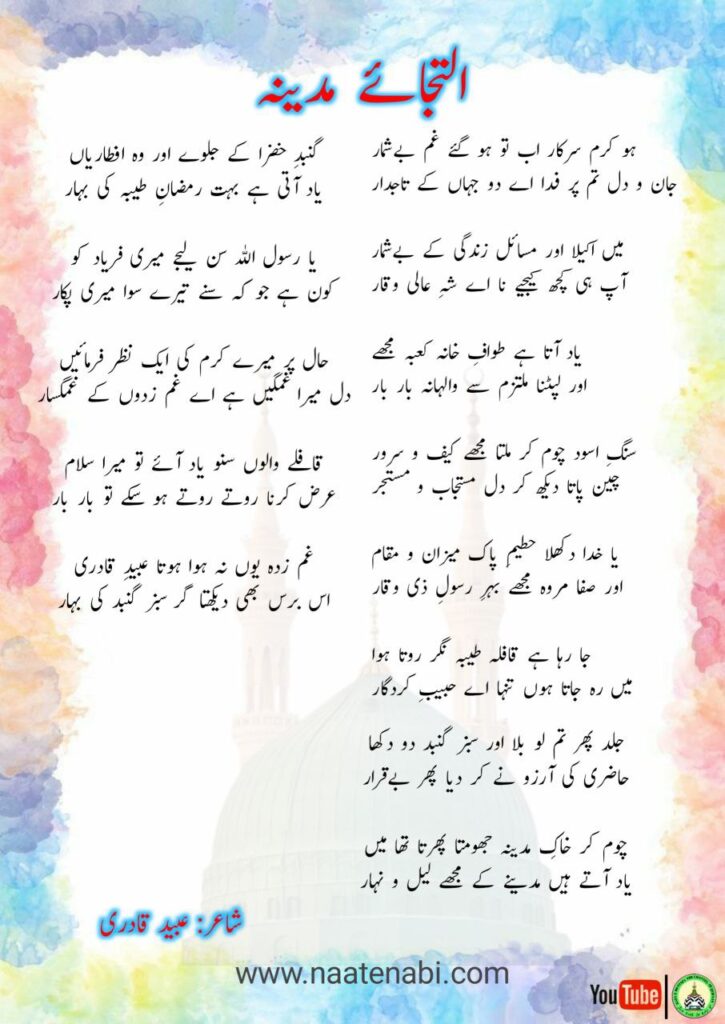 التجائے مدینہ
ہو کرم سرکار اب تو ہو گئے غم بےشمار
جان و دل تم پر فدا اے دو جہاں کے تاجدار
میں اکیلا اور مسائل زندگی کے بےشمار
آپ ہی کچھ کیجیے نا اے شہِ عالی وقار
یاد آتا ہے طوافِ خانہ کعبہ مجھے
اور لپٹنا ملتزم سے والہانہ بار بار
سنگِ اسود چوم کر ملتا مجھے کیف و سرور
چین پاتا دیکھ کر دل مستجاب و مستجر
یا خدا دکھلا حطیمِ پاک میزان و مقام
اور صفا مروہ مجھے بہرِ رسولِ ذی وقار
جا رہا ہے قافلہ طیبہ نگر روتا ہوا
میں رہ جاتا ہوں تنہا اے حبیبِ کردگار
جلد پھر تم لو بلا اور سبز گنبد دو دکھا
حاضری کی آرزو نے کر دیا پھر بےقرار
چوم کر خاکِ مدینہ جھومتا پھرتا تھا میں
یاد آتے ہیں مدینے کے مجھے لیل و نہار
گنبدِ خضرا کے جلوے اور وہ افطاریاں
یاد آتی ہے بہت رمضانِ طیبہ کی بہار
یا رسول اللہ سن لیجے میری فریاد کو
کون ہے جو کہ سنے تیرے سوا میری پکار
حال پر میرے کرم کی ایک نظر فرمائیں
دل میرا غمگیں ہے اے غم زدوں کے غمگسار
قافلے والوں سنو یاد آئے تو میرا سلام
عرض کرنا روتے روتے ہو سکے تو بار بار
غم زدہ یوں نہ ہوا ہوتا عبیدِ قادری
اس برس بھی دیکھتا گر سبز گنبد کی بہار
شاعر: عبید قادری
www.naatenabi.com
YouTube